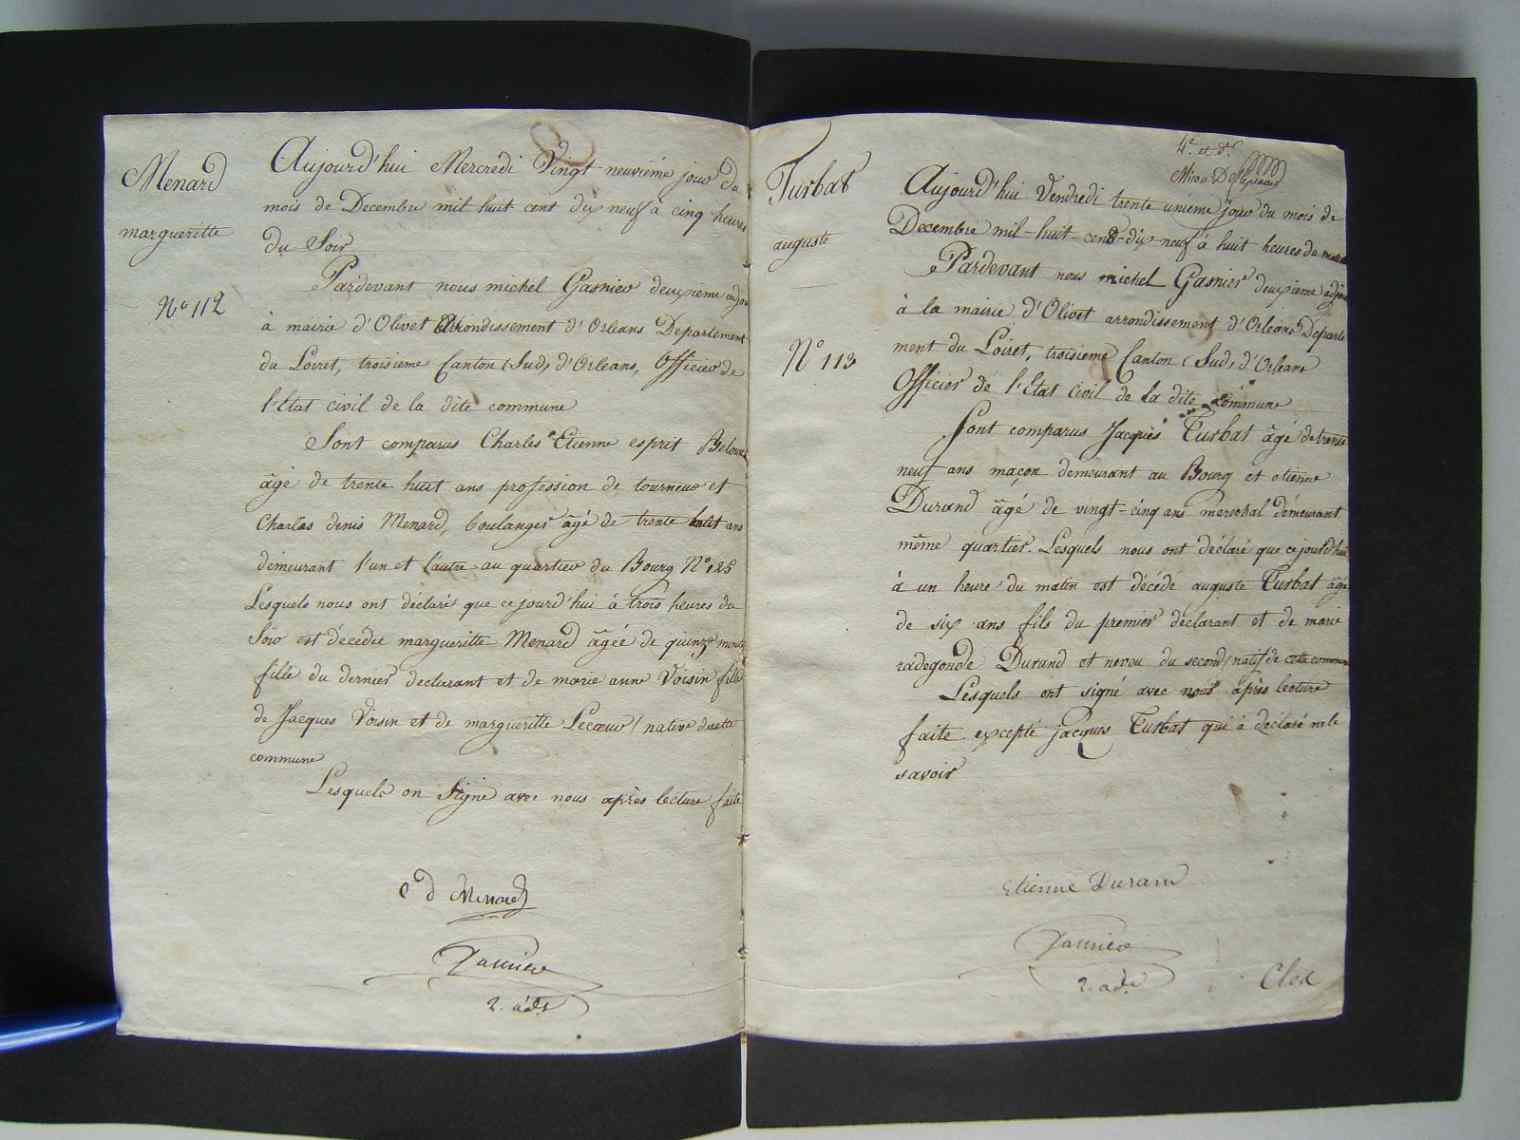 Menard
margueritte
N° 112
Aujourd'hui Mercredi Vingt-neuvième jour du
mois de Decembre mil huit cent dix neuf à cinq heures
du Soir
Pardevant nous michel Gasnier deuxieme adjoi
à mairie d'Olivet arrondissement d'Orleans Departement
du Loiret, troisieme Canton (Sud) d'Orleans, Officier de
l'Etat civil de la dite commune
Sont comparus Charles Etienne esprit
âgé de trente huit ans profession de tourneur et
Charles denis Menard, boulanger âgé de trente huit ans
demeurant l'un et l'autre au quartier du Bourg N° 125
Lesquels nous ont déclaré que ce jourd'hui à trois heures du
Soir est décedée margueritte Menard âgée de quinze mois
fille du dernier declarant et de marie anne Voisin fille
de Jacques Voisin et de margueritte Lecœur (native de cette
commune
Lesquels on Signé avec nous après lecture faite
c d Menard
Gasnier
2. adt
Turbat
auguste
N° 113
4e et de
Aujourd'hui Vendredi trente unieme jour du mois de
Decembre mil-huit-cent-dix-neuf à huit heures du matin
Pardevant nous michel Gasnier deuxieme adjoint
à la mairie d'Olivet arrondissement d'Orleans Departe
ment du Loiret, troisieme Canton (Sud) d'Orleans
Officier de l'Etat Civil de la dite commune
Sont comparus Jacques Turbat âgé de trente
neuf ans maçon demeurant au Bourg et etienne
Durand âgé de vingt-cinq ans marechal demeurant
même quartier. Lesquels nous ont déclaré que ce jourd'hui
à un heure du matin est décédé auguste Turbat âgé
de six ans fils du premier déclarant et de marie
radegonde Durand et neveu du second (natif de cette commune
Lesquels ont signé avec nous après lecture
faite excepté jacques Turbat qui à déclaré ne le
savoir
Etienne Durand
Gasnier
2. adt
Clos